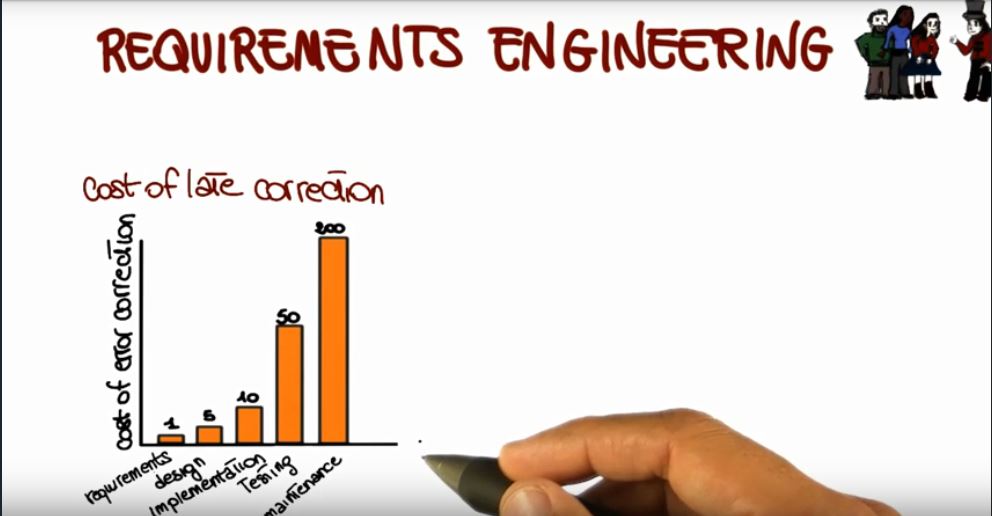 REQUIREMENTS ENGINEERING
cost of late correction
cost of error correction
200
50
10
5
1
requirements
design
implementation
Testing
maintenance